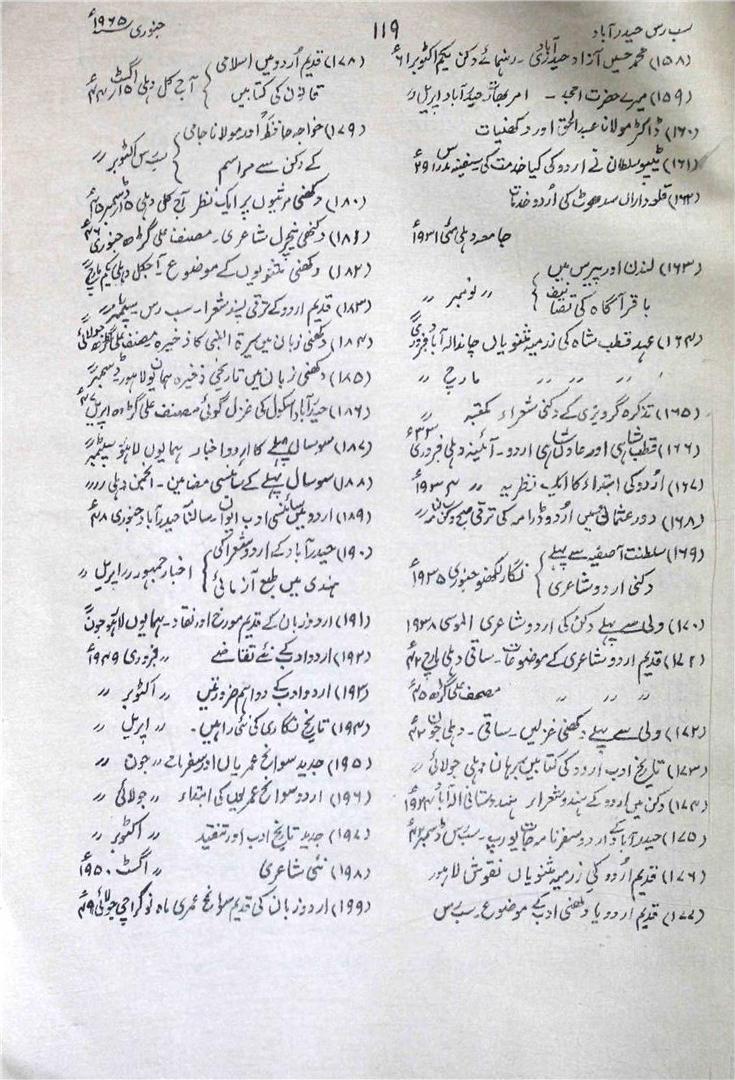 سب رس حیدرآباد
۱۱۹
جنوری ۱۹۶۵ء
(۱۵۸) محمد حسین آزاد حیدرآبادی ۔ رہنمائے دکن یکم اکٹوبر ۶۱ء
(۱۵۹) میرے حضرت امجد ۔ امر بھارت حیدرآباد اپریل ؍؍
(۱۶۰) ڈاکٹر مولانا عبدالحق اور دکھنیات
(۱۶۱) ٹیپو سلطان نے اردو کی کیا خدمت کی سفینہ مدراس ۲۹ء
(۱۶۲) قلعہ داراں سدھوٹ کی اُردو خدمات
جامعہ دہلی مئی ۱۹۳۱ء
(۱۶۳) لندن اور پیرس میں
باقر آگاہ کی تصانیف } ؍؍ نومبر ؍؍
(۱۶۴) عہد قطب شاہ کی رزمیہ مثنویاں چاند الہ آباد فروری
؍؍ ؍؍ ؍؍ مارچ ؍؍
(۱۶۵) تذکرہ گردیزی کے دکنی شعراء مکتبہ ؍؍
(۱۶۶) قطب شاہی اور عادل شاہی اردو ۔ آئینہ دہلی فروری ۳۳ء
(۱۶۷) اُردو کی ابتداء کا ایک نظریہ ؍؍ ۱۹۳۳ء
(۱۶۸) دور عثمانی میں اُردو ڈرامہ کی ترقی صبح دکن
(۱۶۹) سلطنت آصفیہ سے پہلے
دکنی اردو شاعری } نگار لکھنو جنوری ۱۹۳۵ء
(۱۷۰) ولی سے پہلے دکن کی اردو شاعری الموسیٰ ۱۹۳۸
(۱۷۱) قدیم اردو شاعری کے موضوعات ۔ ساقی دہلی مارچ ۴۲ء
؍؍ ؍؍ ؍؍ مصنف علی گڑھ ۴۵ء
(۱۷۲) ولی سے پہلے دکھنی غزلیں ۔ ساقی ۔ دہلی جون ۴۲ء
(۱۷۳) تاریخ ادب اردو کی کتابیں برہان دہلی جولائی ؍؍
(۱۷۴) دکن میں اردو کے ہندو شعراء ہندوستانی الہ آباد
(۱۷۵) حیدرآباد کے اردو سفرنامہ جات یورپ ۔ سب رس ڈسمبر
(۱۷۶) قدیم اُردو کی رزمیہ مثنویاں نقوش لاہور
(۱۷۷) قدیم اردو یا دکھنی ادب کے موضوع ۔ سب رس
(۱۷۸) قدیم اُردو میں اسلامی
قانون کی کتابیں } آج کل دہلی ۱۵ اگسٹ ۴۴ء
(۱۷۹) خواجہ حافظ اور مولانا جامی
کے دکن سے مراسم } سب رس اکٹوبر ؍؍
(۱۸۰) دکھنی مرثیوں پر ایک نظر آج کل دہلی ۱۵ ڈسمبر ۴۵ء
(۱۸۱) دکنھی نیچرل شاعری ۔ مصنف علی گڑھ جنوری ۴۶ء
(۱۸۲) دکھنی مثنویوں کے موضوع آجکل دہلی یکم مارچ
(۱۸۳) قدیم اردو کے ترقی پسند شعراء ۔ سب رس سپٹمبر
(۱۸۴) دکھنی زبان میں سیرۃ النبی کا ذخیرہ مصنف علی گڑھ جولائی
(۱۸۵) دکھنی زبان میں تاریخی ذخیرہ ہمایوں لاہور ڈسمبر
(۱۸۶) حیدرآباد اسکول کی غزل گوئی مصنف علی گڑھ اپریل ۴۷ء
(۱۸۷) سو سال پہلے کا اردو اخبار ہمایوں لاہور سپٹمبر
(۱۸۸) سو سال پہلے کے سائنسی مضامین ۔ انجمن دہلی ؍؍؍
(۱۸۹) اردو میں سائنسی ادب ایوان سالنا حیدرآباد جنوری ۴۸ء
(۱۹۰) حیدرآباد کے اردو شعراء کی
ہندی میں طبع آزمائی } اخبار جمہور ؍؍ اپریل ؍؍
(۱۹۱) اردو زبان کے قدیم مورخ اور نقاد ۔ ہمایوں لاہور جون
(۱۹۲) اردو ادب کے نئے تقاضے ؍؍ فروری ۱۹۴۹ء
(۱۹۳) اردو ادب کے دو اہم ضرورتیں ؍؍ اکٹوبر ؍؍
(۱۹۴) تاریخ نگاری کی نئی راہیں ۔ ؍؍ اپریل ؍؍
(۱۹۵) جدید سوانح عمریاں اور سفرنامے ؍؍ جون ؍؍
(۱۹۶) اردو سوانح عمریوں کی ابتداء ؍؍ جولائی ؍؍
(۱۹۷) جدید تاریخ ادب اور تنقید ؍؍ اکٹوبر ؍؍
(۱۹۸) نئی شاعری ؍؍ اگسٹ ۱۹۵۰ء
(۱۹۹) اردو زبان کی قدیم سوانح عمری ماہ نو کراچی جولائی ۴۹ء